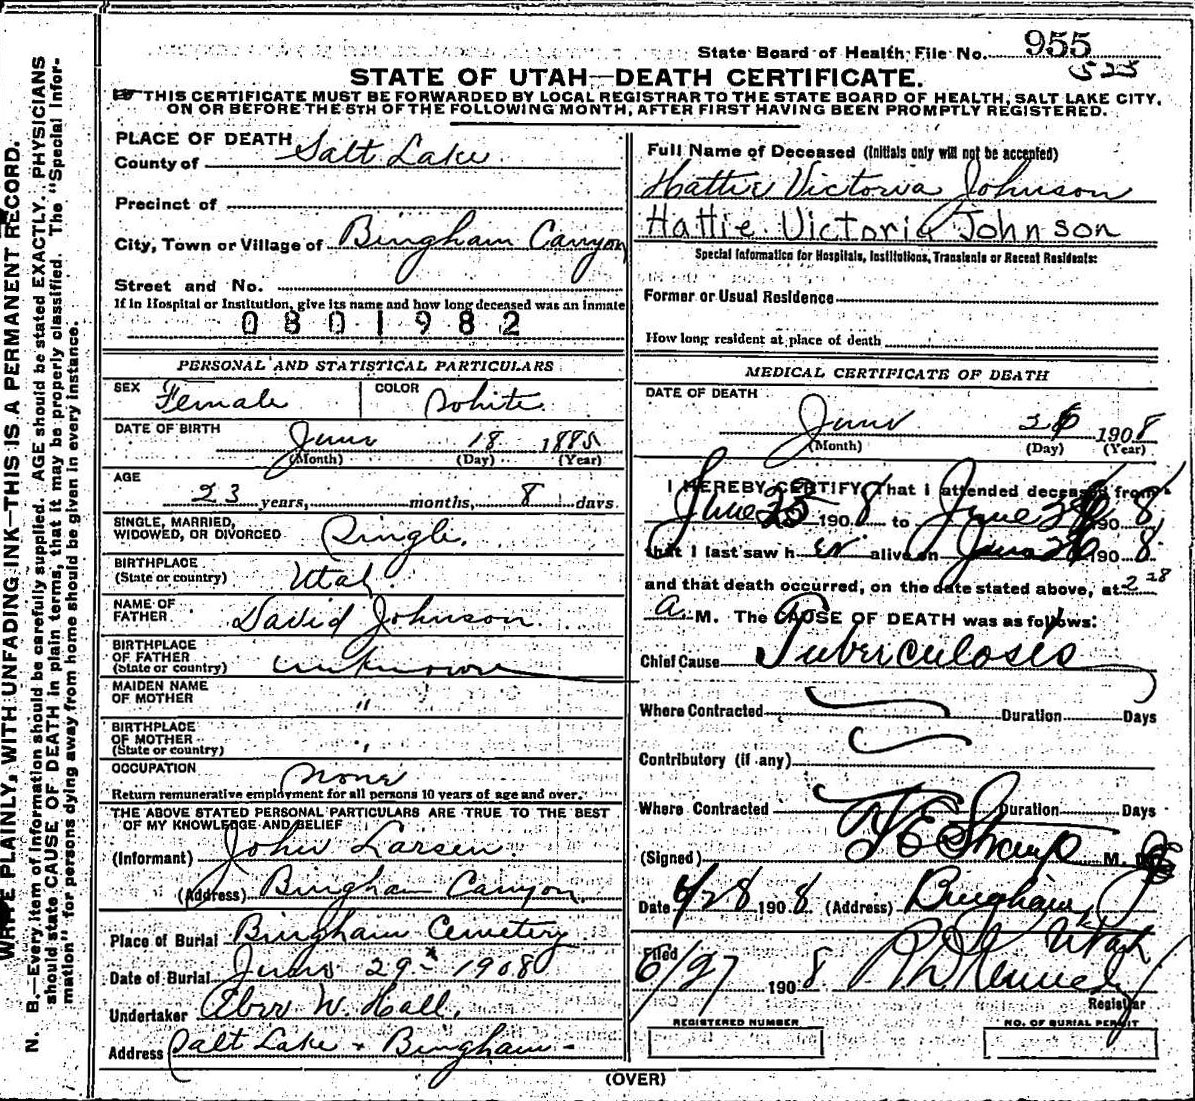 State Board of Health File No. 955
525
STATE OF UTAH—DEATH CERTIFICATE.
THIS CERTIFICATE MUST BE FORWARDED BY LOCAL REGISTRAR TO THE STATE BOARD OF HEALTH, SALT LAKE CITY,
ON OR BEFORE THE 5TH OF THE FOLLOWING MONTH, AFTER FIRST HAVING BEEN PROMPTLY REGISTERED.
WRITE PLAINLY, WITH UNFADING INK—THIS IS A PERMANENT RECORD.
N. B.—Every item of information should be carefully supplied. AGE should be stated EXACTLY. PHYSICIANS
should state CAUSE OF DEATH in plain terms, that it may be properly classified. The "Special Infor-
mation" for persons dying away from home should be given in every instance.
PLACE OF DEATH
County of Salt Lake
Precinct of
City, Town or Village of Bingham Canyon
Street and No.
If in Hospital or Institution, give its name and how long deceased was an inmate
0801982
PERSONAL AND STATISTICAL PARTICULARS
SEX Female COLOR White
DATE OF BIRTH June 18 1885
(Month) (Day) (Year)
AGE
23 years, months, 8 days
SINGLE, MARRIED,
WIDOWED, OR DIVORCED Single.
BIRTHPLACE
(State or country) Utah
NAME OF
FATHER David Johnson
BIRTHPLACE
OF FATHER
(State or country) unknown
MAIDEN NAME
OF MOTHER "
BIRTHPLACE
OF MOTHER
(State or country) "
OCCUPATION none
Return remunerative employment for all persons 10 years of age and over.
THE ABOVE STATED PERSONAL PARTICULARS ARE TRUE TO THE BEST
OF MY KNOWLEDGE AND BELIEF
(Informant) John Larsen
(Address) Bingham Canyon
Place of Burial Bingham Cemetery
Date of Burial June 29 - 1908
Undertaker Eber W. Hall.
Address Salt Lake & Bingham -
Full Name of Deceased (Initials only will not be accepted)
Hattie Victoria Johnson
Hattie Victoria Johnson
Special Information for Hospitals, Institutions, Transients or Recent Residents:
Former or Usual Residence
How long resident at place of death
MEDICAL CERTIFICATE OF DEATH
DATE OF DEATH
June 26 1908
(Month) (Day) (Year)
I HEREBY CERTIFY, That I attended deceased from
June 25 1908 to June 26 1908
that I last saw her alive on June 26 1908
and that death occurred, on the date stated above, at 2 28
a. M. The CAUSE OF DEATH was as follows:
Chief Cause Tuberculosis
Where Contracted Duration Days
Contributory (if any)
Where Contracted Duration Days
(Signed) F E Straup M. D.
Date 6/28 1908 (Address) Bingham
Utah
Filed
6/27 1908 Kennedy
Registrar
REGISTERED NUMBER NO. OF BURIAL PERMIT
(OVER)